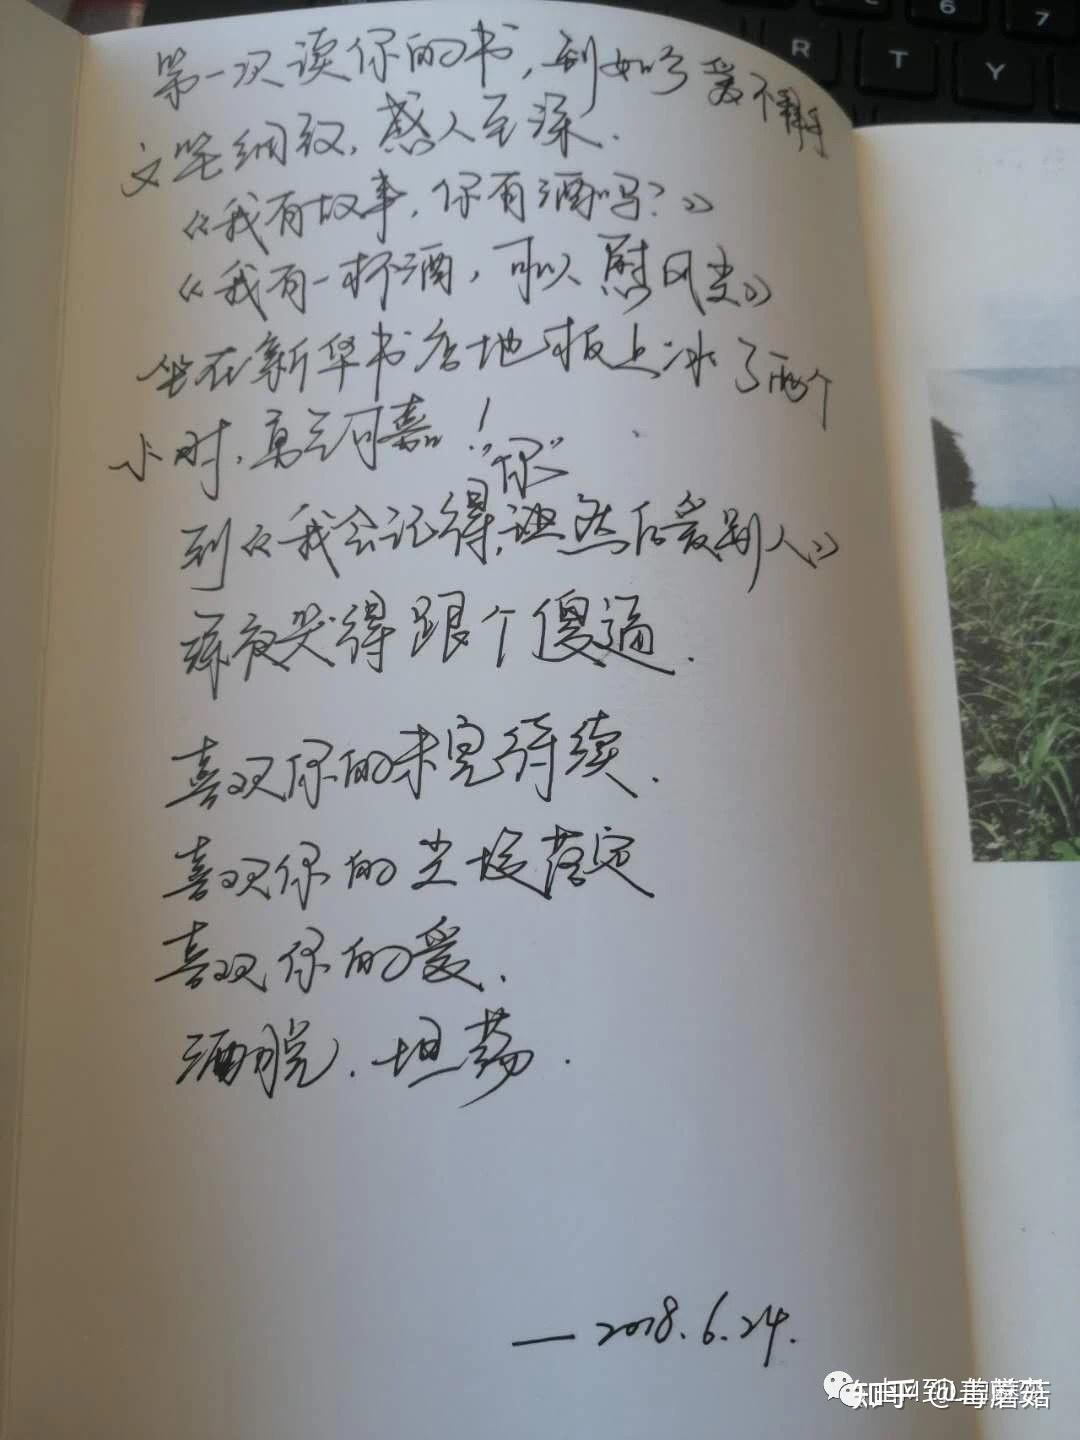 6
7
R
T
Y
第一次读你的书，到如今爱不释手
文笔细致，感人至深.
《我有故事，你有酒吗？》
《我有一杯酒，可以慰风尘》
坐在新华书店地板上冰了两个
小时，勇气可嘉！
"你"
到《我会记得，然后爱别人》
深夜哭得跟个傻逼.
喜欢你的未完待续.
喜欢你的尘埃落定
喜欢你的爱.
洒脱.坦荡.
—2018.6.24.
知乎 @毒蘑菇